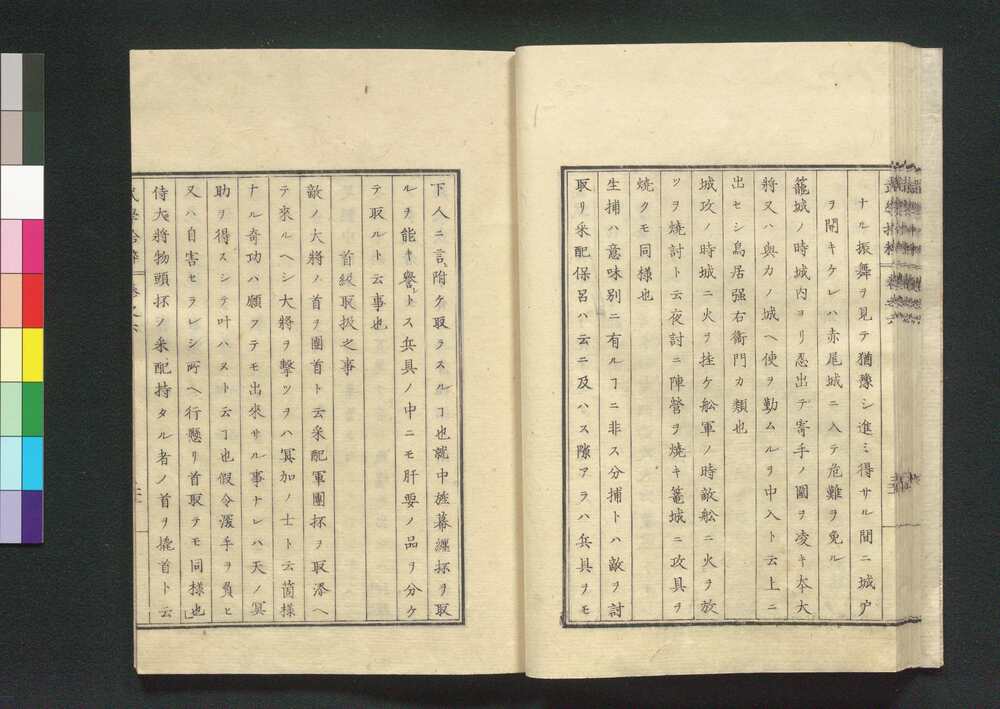 ナル振舞ヲ見テ猶豫シ進ミ得サル間ニ城戸
ヲ開キケレハ赤尾城ニ入テ危難ヲ免ル
籠城ノ時城内ヨリ忍出デ寄手ノ圍ヲ凌キ本大
將又ハ與力ノ城ヘ使ヲ勤ムルヲ中入ト云上ニ
出セシ鳥居强右衛門カ類也
城攻ノ時城ニ火ヲ挂ケ舩軍ノ時敵舩ニ火ヲ放
ツヲ焼討ト云夜討ニ陣營ヲ焼キ篭城ニ攻具ヲ
焼クモ同様也
生捕ハ意味別ニ有ルヿニ非ス分捕トハ敵ヲ討
取リ采配保呂ハ云ニ及ハス隙アラハ兵具ヲモ
下人ニ言附ケ取ラスルヿ也就中旌幕纏抔ヲ取
ルヲ能キ譽トス兵具ノ中ニモ肝要ノ品ヲ分ケ
テ取ルト云事也
首級取扱之事
敵ノ大將ノ首ヲ團首ト云采配軍團抔ヲ取添ヘ
テ來ルヘシ大將ヲ擊ツヲハ冥加ノ士ト云箇様
ナル奇功ハ願フテモ出來サル事ナレハ天ノ冥
助ヲ得スシテ叶ハヌト云ヿ也假令深手ヲ負ヒ
又ハ自害セラレシ所ヘ行懸リ首取テモ同様也
侍大將物頭抔ノ采配持タル者ノ首ヲ撓首ト云